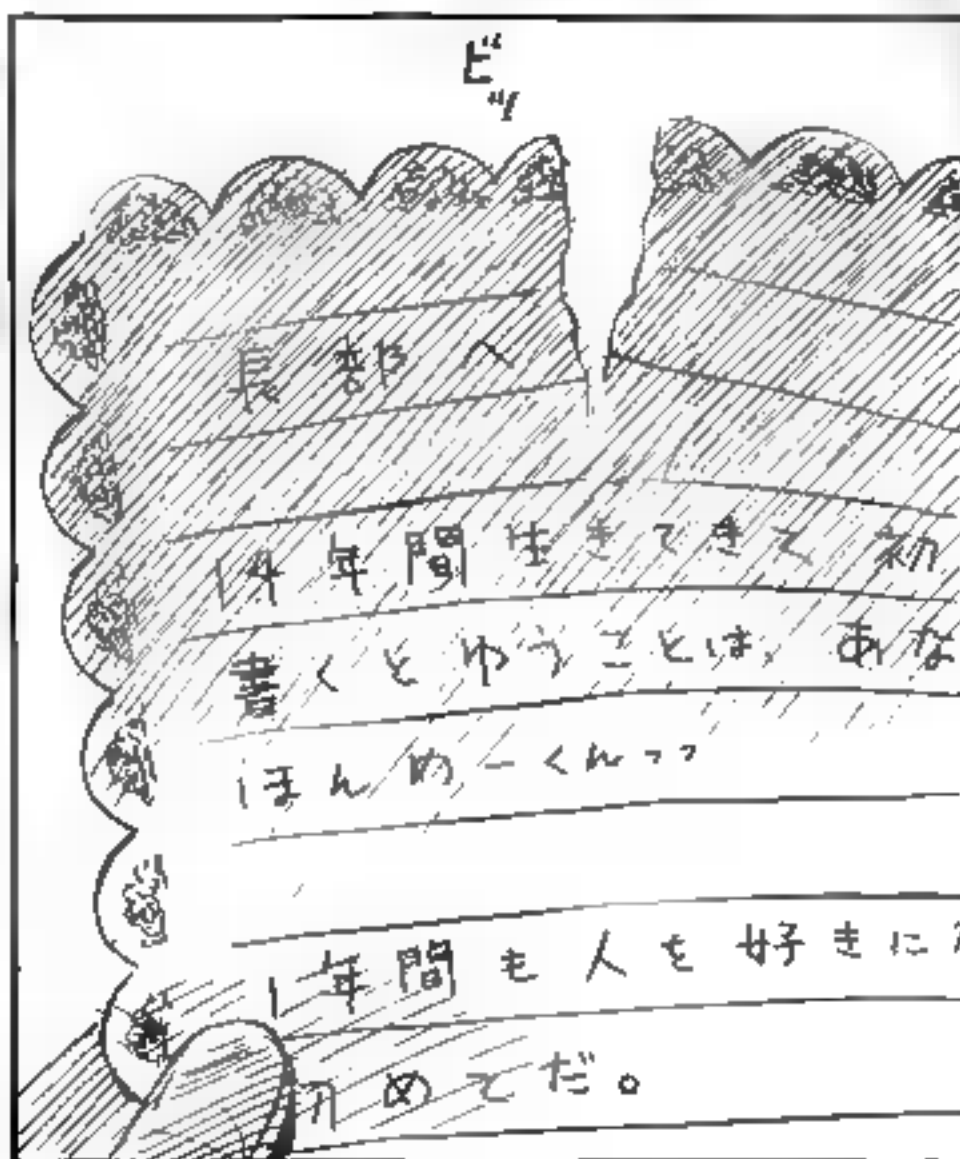 ビッ
長部へ
14年間生きてきて初
書くとゆうことは、あな
ほんめーくんっっ
1年間も人を好きに
めてだ。